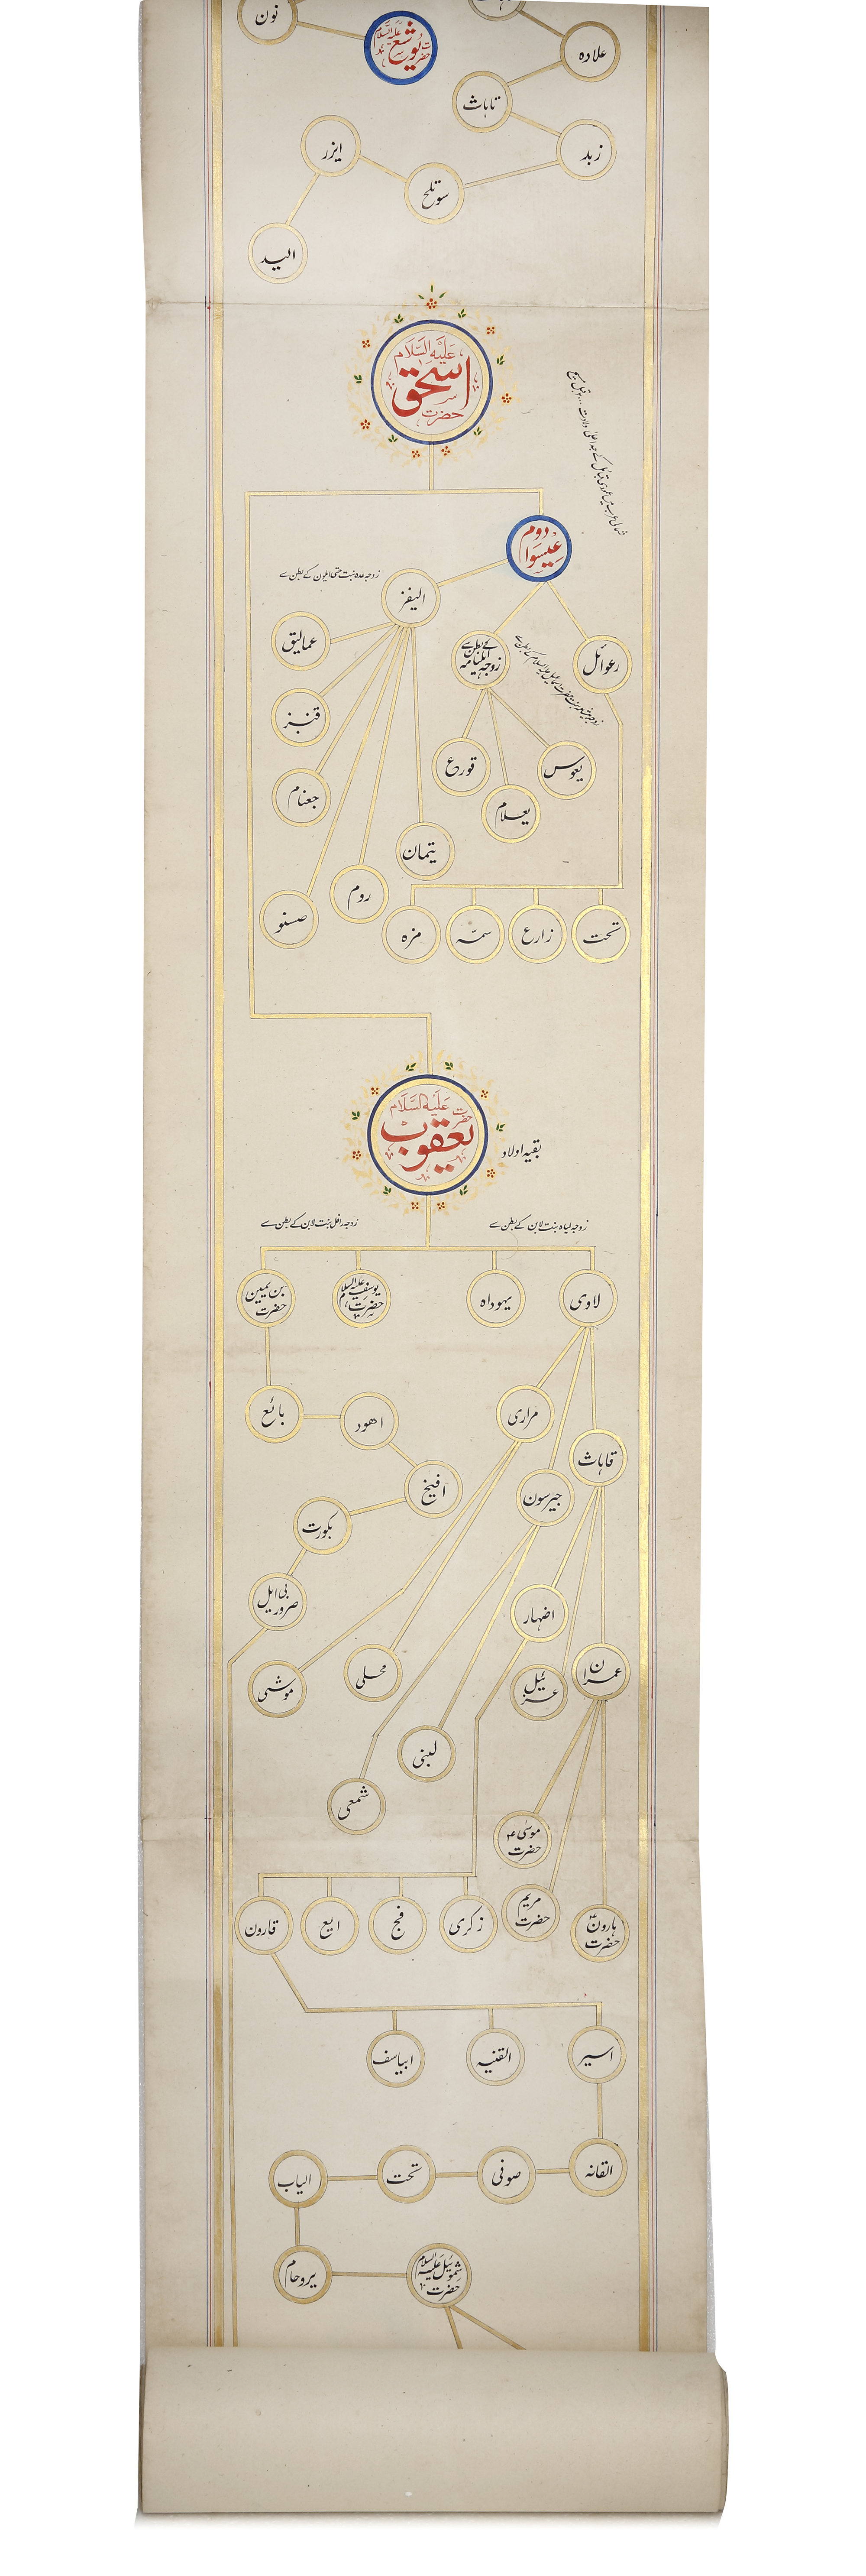 نون
حضرت یوشع علیہ السلام
علادہ
تاہاث
زبد
سوتلح
ایزر
الید
حضرت اسحٰق علیہ السلام
عیسو ادوم
زوجہ عدہ بنت حتی ایلون کے بطن سے
الیفز
عمالیق
قنبز
جعنام
صنو
روم
یتمان
رعوائل
قورع
یعلام
یعوس
مزہ
سمّہ
زارع
تحت
حضرت یعقوب علیہ السلام
بقیہ اولاد
زوجہ لیاہ بنت لابن کے بطن سے
زوجہ رافل بنت لابن کے بطن سے
لاوی
یہوداہ
حضرت یوسف علیہ السلام
حضرت بن یمین
بائع
اھود
افیخ
بکورت
ضرور بی ایل
مراری
جیرسون
قاہاث
اضہار
عزئیل
عمران
موشی
محلی
لبنی
شمعی
حضرت موسیٰؑ
حضرت مریم
حضرت ہارونؑ
زکری
فج
ایع
قارون
اسیر
القنیہ
ابیاسف
القانہ
صوفی
تحت
الیاب
یروحام
حضرت شموئیل علیہ السلام